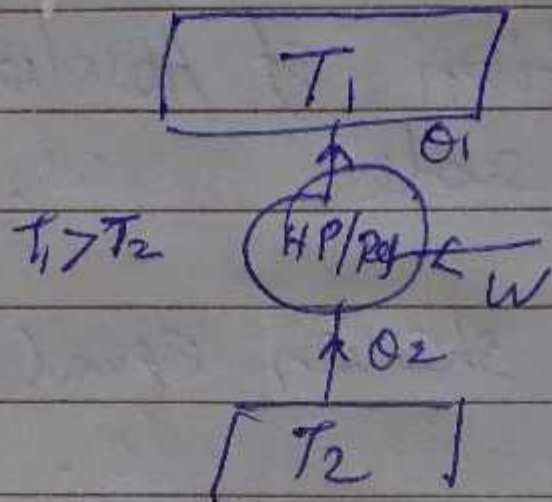 T₁
Q1
T₁ > T₂
HP/Ref
W
Q2
T2